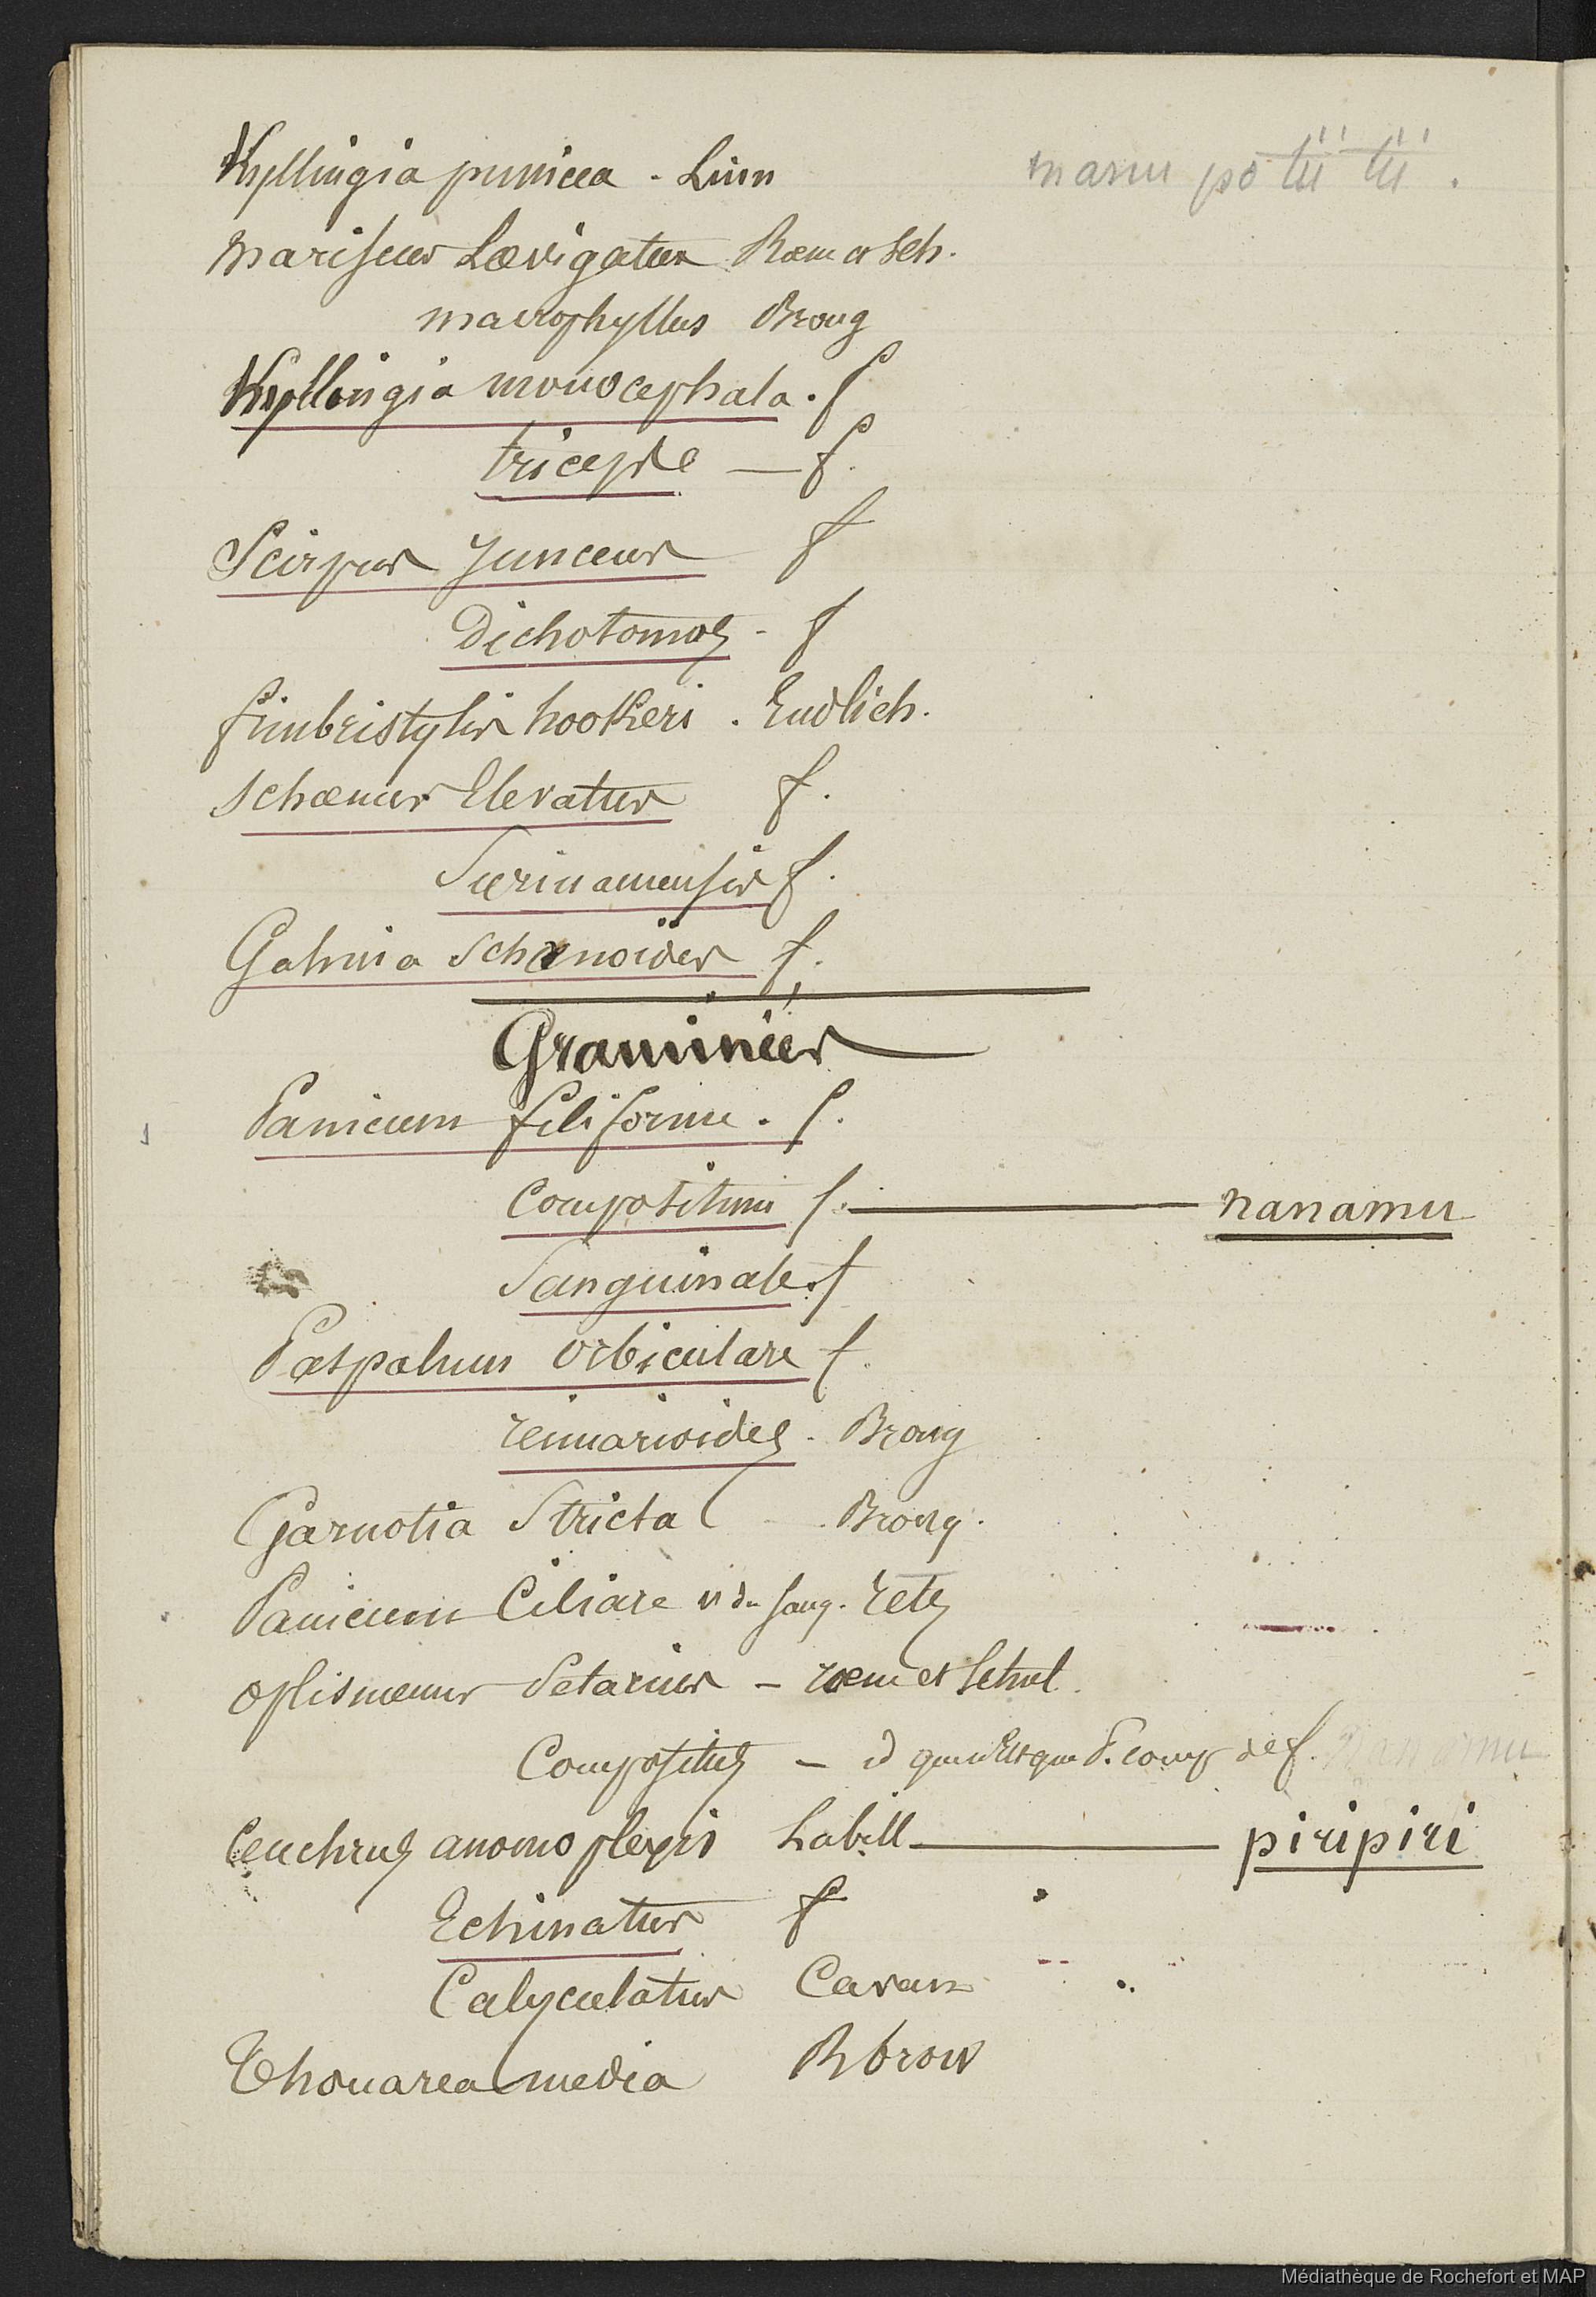 Kyllingia punicea - Linn manu pō tii tii .
Mariscus Lœvigatus Rœm et Sch.
macrophyllus Brong
Kyllingia monocephala . f
triceps — f.
Scirpus Junceus f
Dichotomos - f
fimbristylis hookeri . Endlich.
Schœnus Elevatus f.
Surinamensis f.
Gahnia Schœnoides f.
Graminées
Panicum filiforme . f.
Compositum f. — nanamu
Sanguinale . f
Paspalum orbiculare f.
reimarioides - Brong
Garnotia Stricta - Brong.
Panicum Ciliare v. d. sang. retz
oplismenus Setarius - rœm et Schul.
Compositus - id qui n'Est que P. comp de f. nanamu
Cenchrus anomoplexis Labill — piripiri
Echinatus f
Calyculatus Cavan
Thouarea media R brow
Médiathèque de Rochefort et MAP